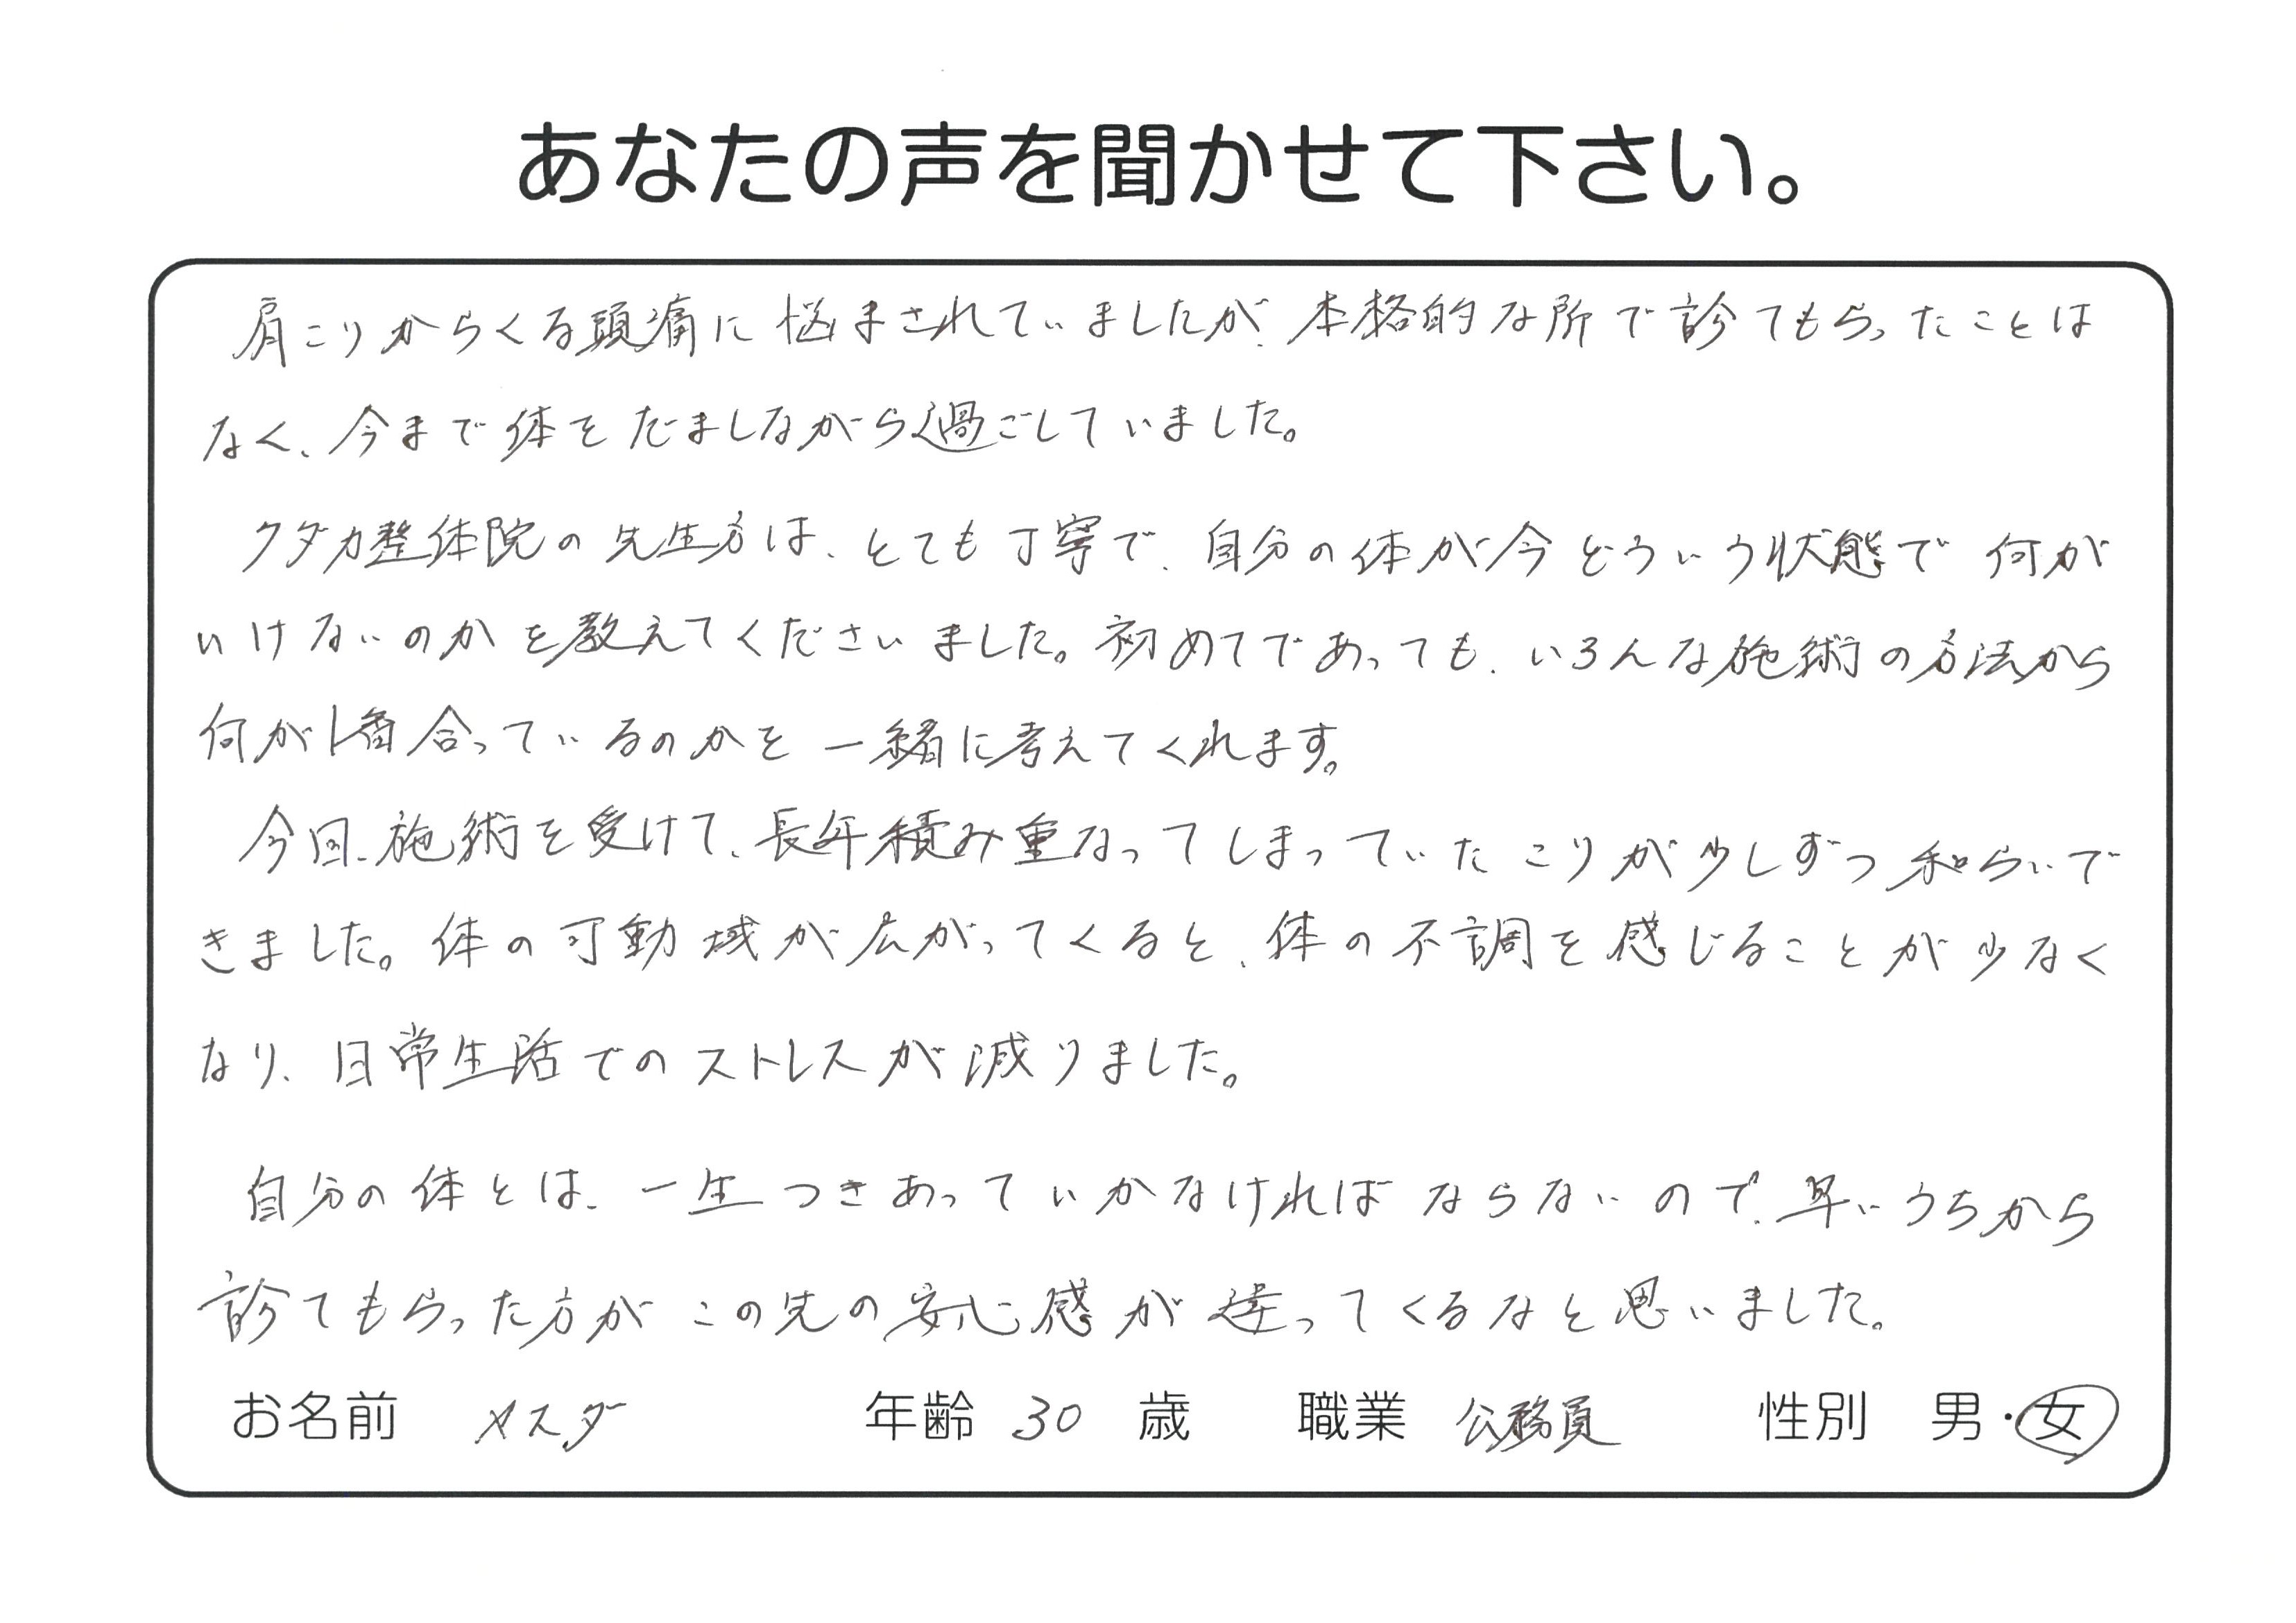 あなたの声を聞かせて下さい。
肩こりからくる頭痛に悩まされていましたが、本格的な所で診てもらったことは
なく、今まで体をだましながら過ごしていました。
クダカ整体院の先生方は、とても丁寧で、自分の体が今どういう状態で何が
いけないのかを教えてくださいました。初めてであっても、いろんな施術の方法から
何が1番合っているのかを一緒に考えてくれます。
今回、施術を受けて、長年積み重なってしまっていたこりが少しずつ和らいで
きました。体の可動域が広がってくると、体の不調を感じることが少なく
なり、日常生活でのストレスが減りました。
自分の体とは、一生つきあっていかなければならないので、早いうちから
診てもらった方がこの先の安心感が違ってくるなと思いました。
お名前 ヤスダ 年齢 30 歳 職業 公務員 性別 男・女